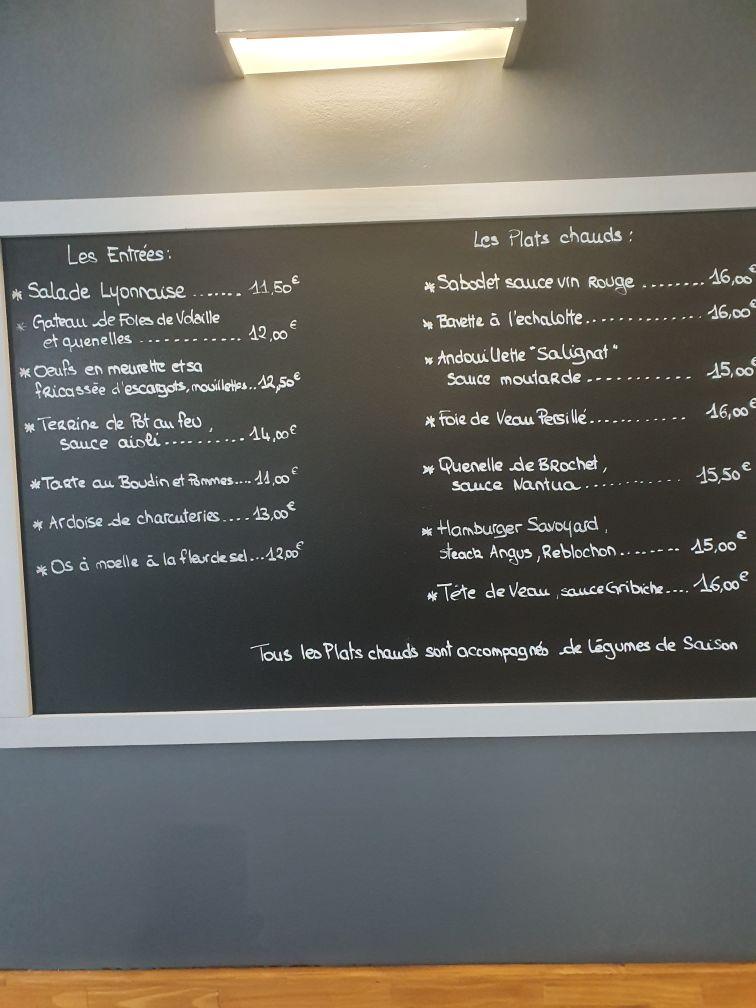 Les Entrées:
* Salade Lyonnaise ....... 11,50€
* Gateau de Foies de Volaille
et quenelles ............ 12,00€
* Oeufs en meurette et sa
fricassée d'escargots, mouillettes.. 12,50€
* Terrine de Pot au feu,
sauce aioli .......... 14,00€
* Tarte au Boudin et Pommes.... 11,00€
* Ardoise de charcuteries .... 13,00€
* Os à moelle à la fleur de sel... 12,00€
Les Plats chauds :
* Sabodet sauce vin Rouge ........ 16,00€
* Bavette à l'echalotte .............. 16,00€
* Andouillette "Salignat"
sauce moutarde ............ 15,00€
* Foie de Veau Persillé ............ 16,00€
* Quenelle de Brochet,
sauce Nantua ............ 15,50€
* Hamburger Savoyard,
steack Angus, Reblochon ........ 15,00€
* Tête de Veau, sauce Gribiche .... 16,00€
Tous les Plats chauds sont accompagnés de légumes de Saison